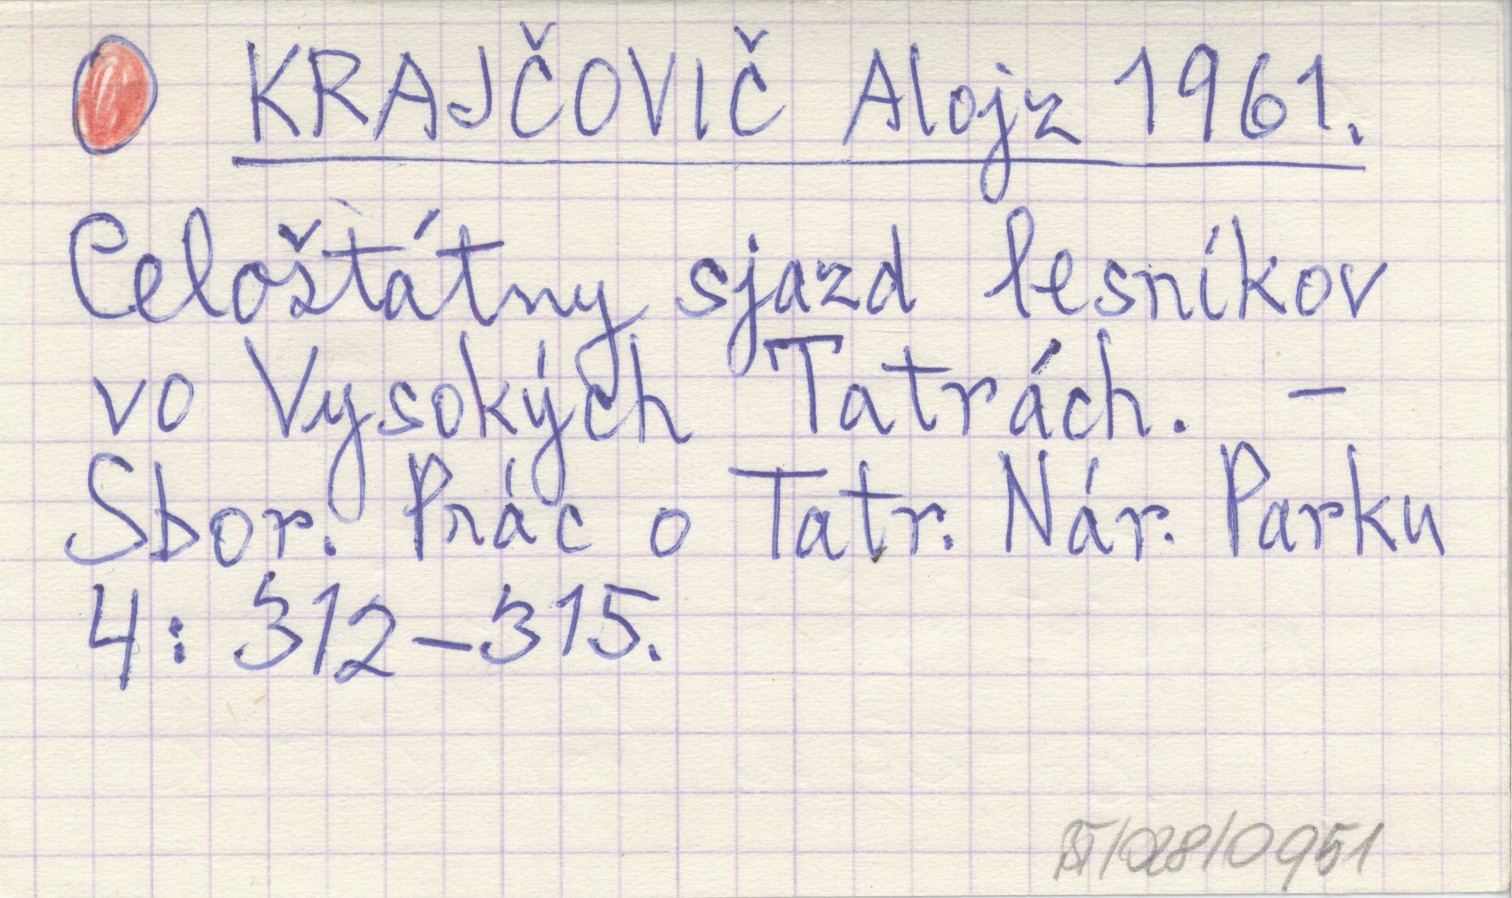 KRAJČOVIČ Alojz 1961.
Celoštátny sjazd lesníkov
vo Vysokých Tatrách. –
Sbor. Prác o Tatr. Nár. Parku
4: 312–315.
BT/028/0951